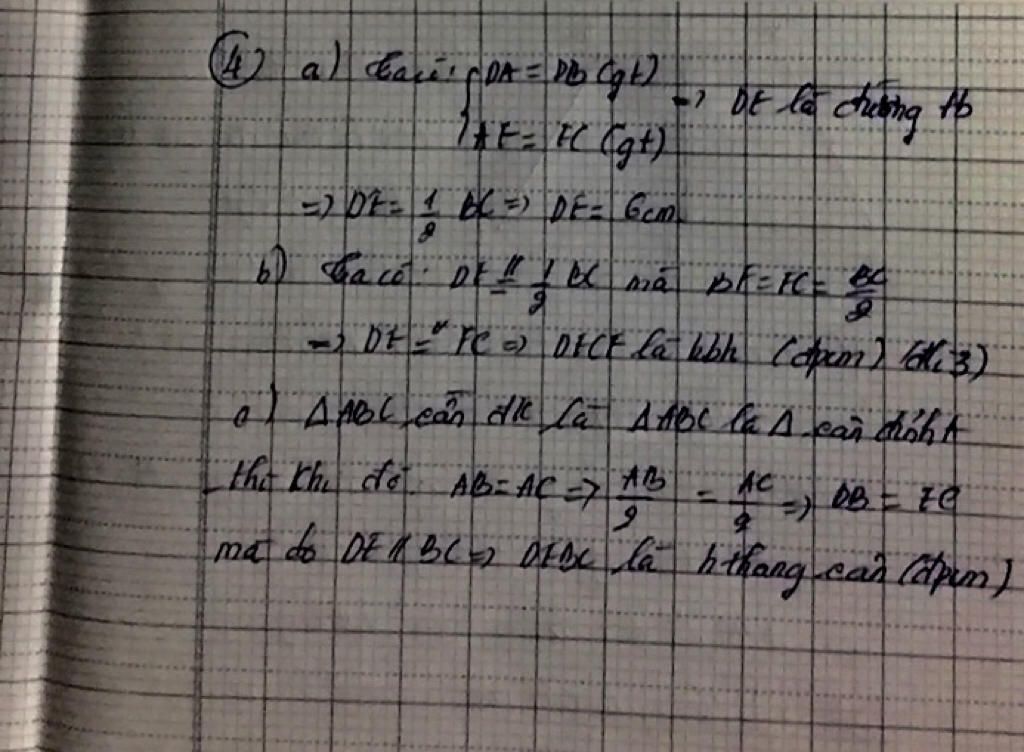 4) a) Ta có: { DA = DB (gt) => DE là đường tb
AE = EC (gt)
=> DE = 1/2 BC => DE = 6cm
b) Ta có: DE //= 1/2 BC mà BF = FC = BC/2
=> DE =// FC => DECF là hbh (đpcm) (dh:3)
c) ΔABC cần đk là ΔABC là Δ cân đỉnh A
thì khi đó AB = AC => AB/2 = AC/2 => DB = EC
mà do DE // BC => DEBC là hthang cân (đpcm)